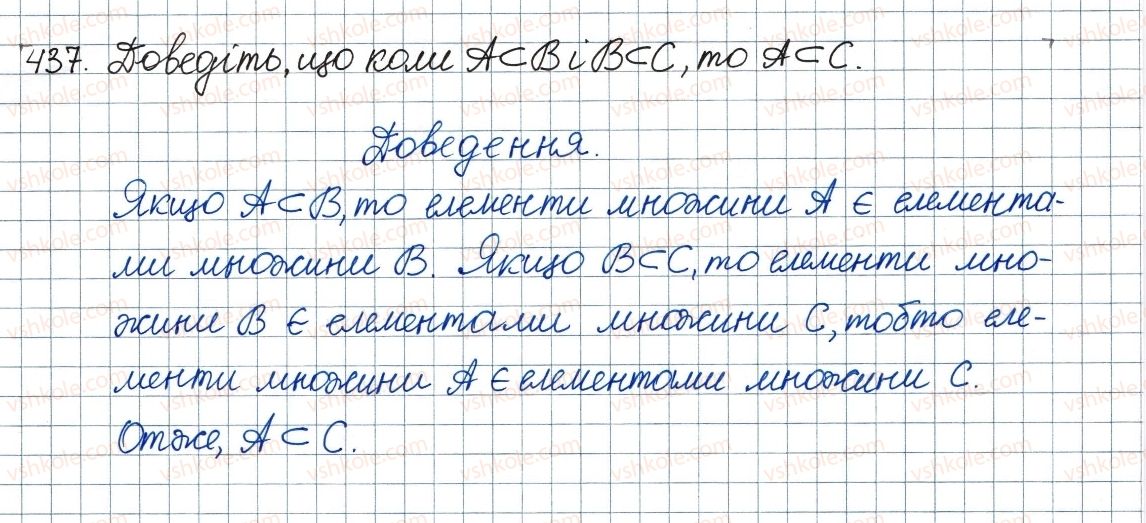 437. Доведіть, що коли A⊂B і B⊂C, то A⊂C.
Доведення.
Якщо A⊂B, то елементи множини A є елемента-
ми множини B. Якщо B⊂C, то елементи мно-
жини B є елементами множини C, тобто еле-
менти множини A є елементами множини C.
Отже, A⊂C.